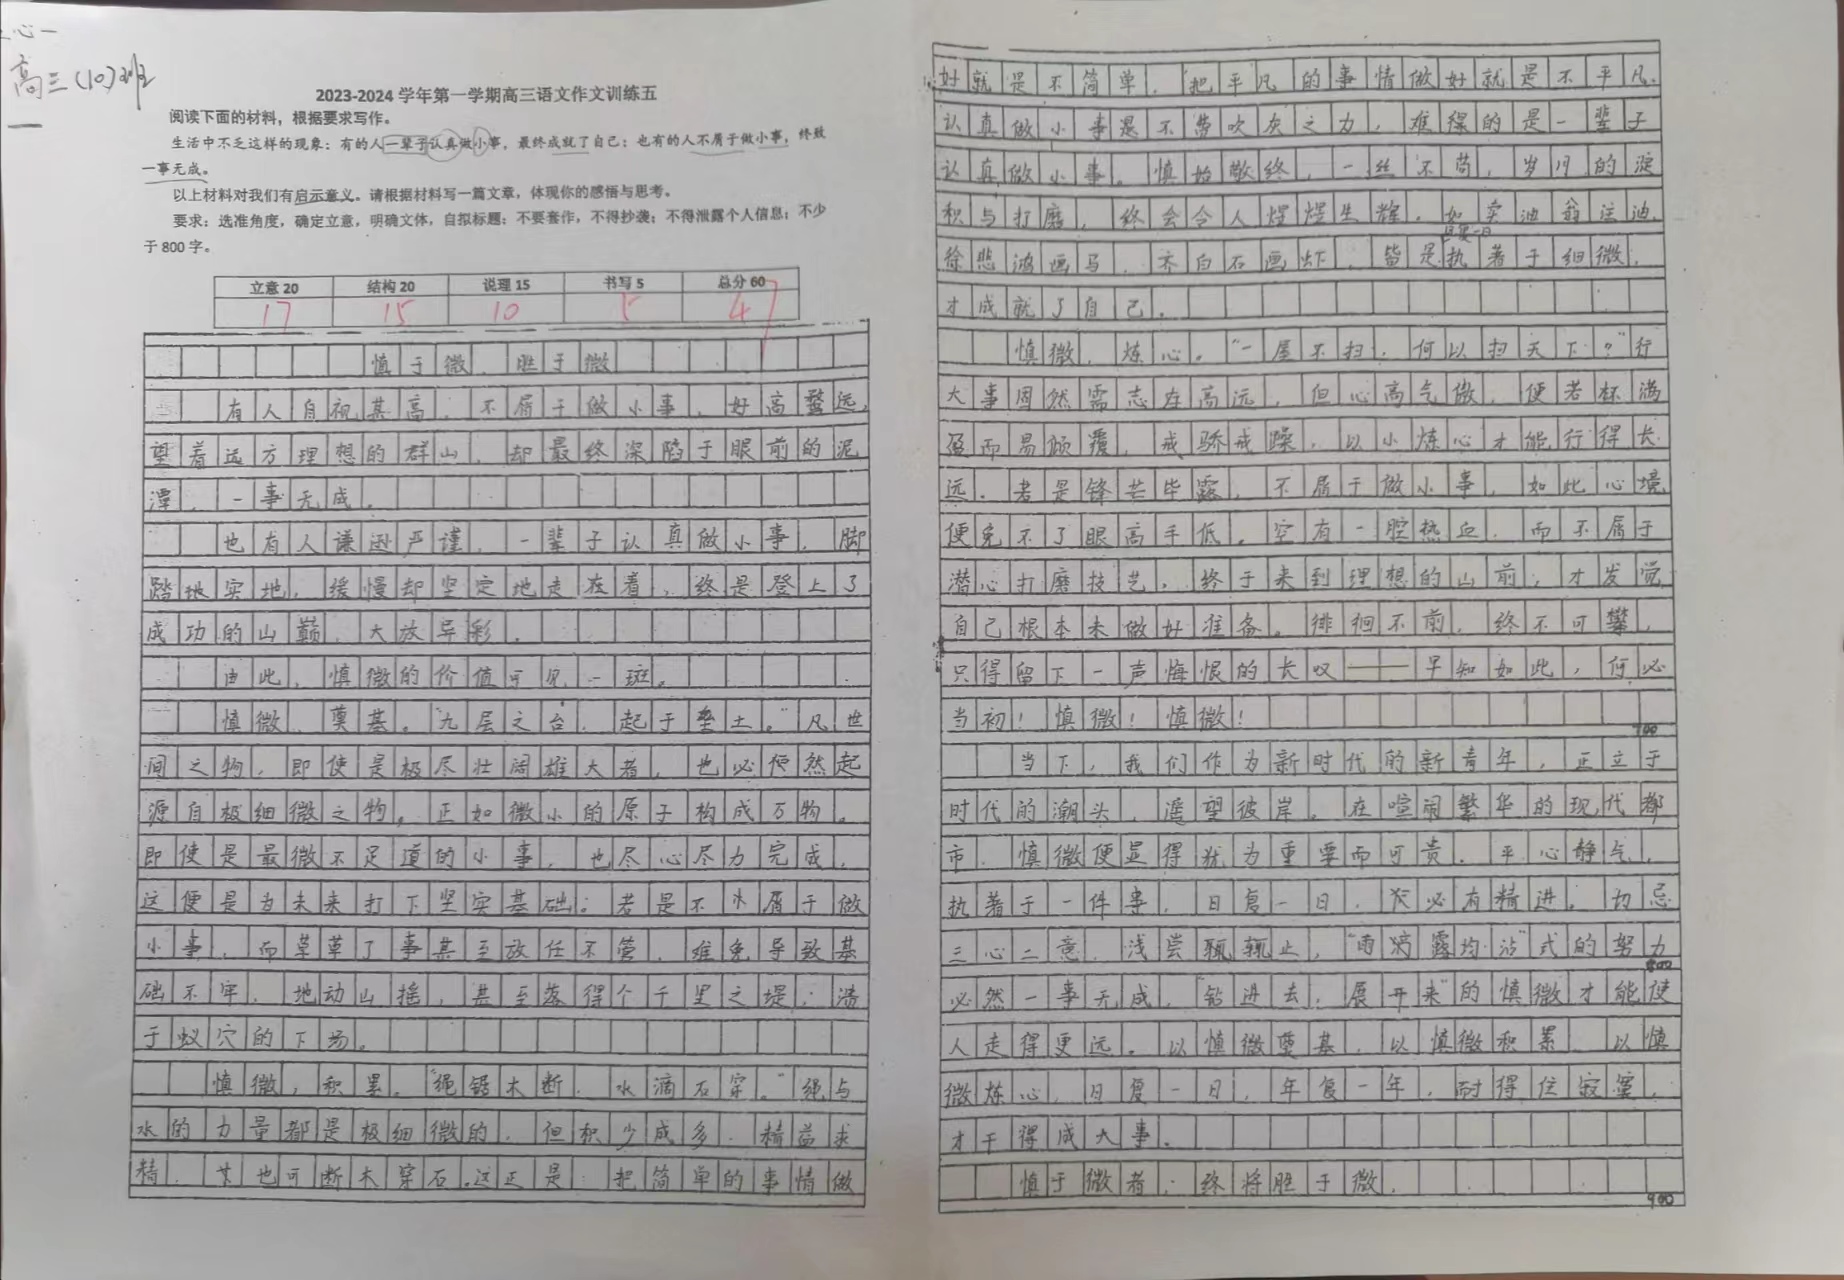 心一
高三（10）班
一
2023-2024 学年第一学期高三语文作文训练五
阅读下面的材料，根据要求写作。
生活中不乏这样的现象：有的人一辈子认真做小事，最终成就了自己；也有的人不屑于做小事，终致
一事无成。
以上材料对我们有启示意义。请根据材料写一篇文章，体现你的感悟与思考。
要求：选准角度，确定立意，明确文体，自拟标题；不要套作，不得抄袭；不得泄露个人信息；不少
于 800 字。
立意 20 结构 20 说理 15 书写 5 总分 60
17 15 10 5 47
慎于微，胜于微
有人自视甚高，不屑于做小事，好高骛远，
望着远方理想的群山，却最终深陷于眼前的泥
潭，一事无成。
也有人谦逊严谨，一辈子认真做小事，脚
踏地实地，缓慢却坚定地走在着，终是登上了
成功的山巅，大放异彩。
由此，慎微的价值可见一斑。
慎微，奠基。“九层之台，起于垒土。”凡世
间之物，即使是极尽壮阔雄大者，也必便然起
源自极细微之物。正如微小的原子构成万物。
即使是最微不足道的小事，也尽心尽力完成，
这便是为未来打下坚实基础；若是不屑于做
小事，而草草了事甚至放任不管，难免导致基
础不牢，地动山摇，甚至落得个千里之堤，溃
于蚁穴的下场。
慎微，积累。“绳锯木断，水滴石穿。”绳与
水的力量都是极细微的，但积少成多，精益求
精，其也可断木穿石。这正是：把简单的事情做
好就是不简单，把平凡的事情做好就是不平凡。
认真做小事是不费吹灰之力，难得的是一辈子
认真做小事。慎始敬终，一丝不苟，岁月的淀
积与打磨，终会令人熠熠生辉。如卖油翁注油，
日复一日
徐悲鸿画马，齐白石画虾，皆是执着于细微，
才成就了自己。
慎微，炼心。“一屋不扫，何以扫天下？”行
大事固然需志在高远，但心高气傲，便若杯满
盈而易倾覆，戒骄戒躁，以小炼心才能行得长
远。若是锋芒毕露，不屑于做小事，如此心境
便免不了眼高手低。空有一腔热血，而不屑于
潜心打磨技艺，终于来到理想的山前，才发觉
自己根本未做好准备。徘徊不前，终不可攀，
只得留下一声悔恨的长叹——早知如此，何必
当初！慎微！慎微！
700
当下，我们作为新时代的新青年，正立于
时代的潮头，遥望彼岸。在喧闹繁华的现代都
市，慎微便显得犹为重要而可贵。平心静气，
执着于一件事，日复一日，必有精进。切忌
三心二意，浅尝辄辄止，“雨滴露均沾”式的努力
800
必然一事无成，“钻进去，展开来”的慎微才能使
人走得更远。以慎微奠基，以慎微积累，以慎
微炼心，日复一日，年复一年，耐得住寂寞，
才干得成大事。
慎于微者，终将胜于微。
900